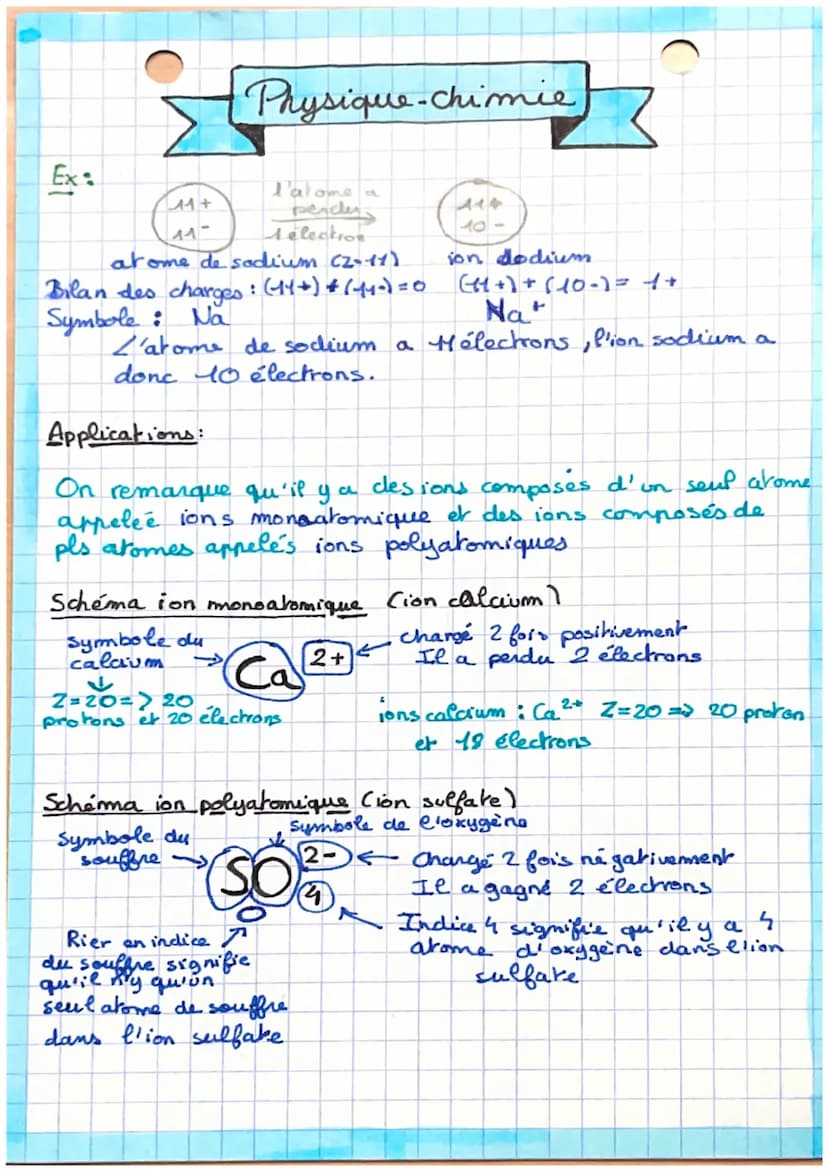 Physique-chimie
Ex:
11+
11-
l'atome a
perdu
1 électron
11+
10-
atome de sodium (Z=11)
ion dodium
Bilan des charges : (11+) + (11-) = 0
(11+) + (10-) = 1+
Symbole : Na
Na+
L'atome de sodium a 11 électrons, l'ion sodium a
donc 10 électrons.
Applications:
On remarque qu'il y a des ions composés d'un seul atome
appeleé ions monoatomique et des ions composés de
pls atomes appelés ions polyatomiques
Schéma ion monoatomique (ion calcium)
symbole du
calcium
Ca 2+
chargé 2 fois positivement
Il a perdu 2 électrons
Z=20=> 20
protons et 20 électrons
ions calcium : Ca2+ Z=20 => 20 proton
et 18 électrons
Schéma ion polyatomique (ion sulfate)
Symbole de l'oxygène
Symbole du
souffre
SO 2-
4
Chargé 2 fois négativement
Il a gagné 2 électrons
Indice 4 signifie qu'il y a 4
atome d'oxygène dans l'ion
sulfate
Rier en indice
du souffre signifie
qu'il n'y qu'un
seul atome de souffre
dans l'ion sulfate